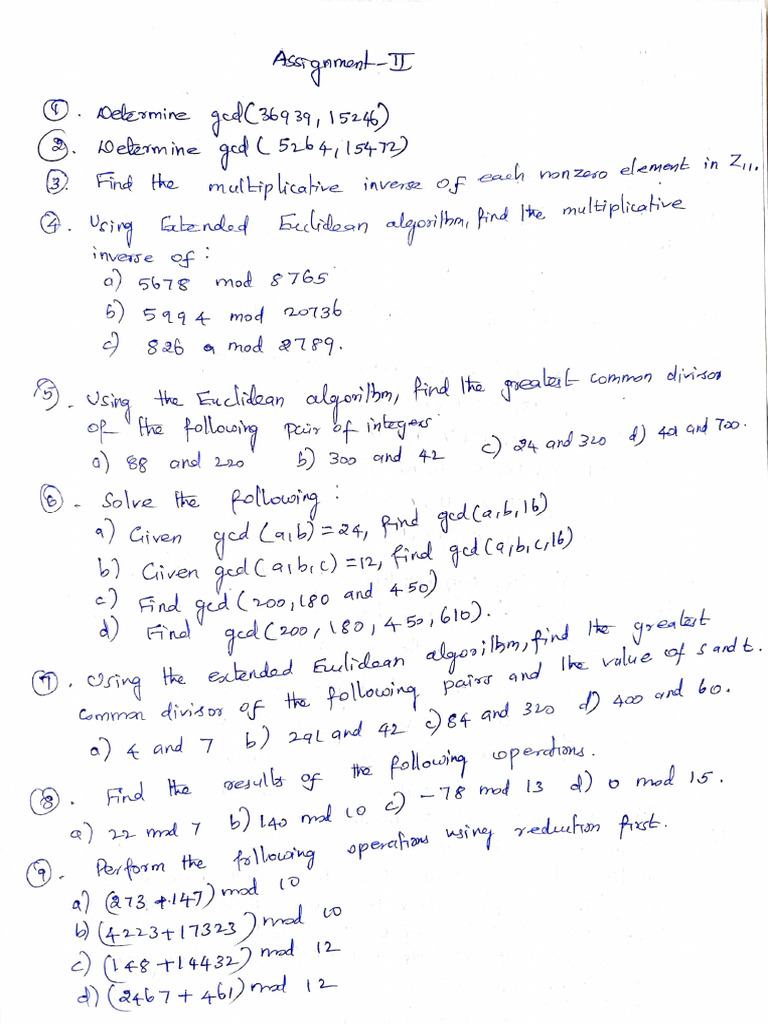 Assignment-II
①. Determine gcd(36939, 15246)
②. Determine gcd (5264, 15472)
③. Find the multiplicative inverse of each nonzero element in Z11.
④. Using Extended Euclidean algorithm, find the multiplicative
inverse of :
a) 5678 mod 8765
b) 5994 mod 20736
c) 826 mod 2789.
⑤. Using the Euclidean algorithm, find the greatest common divisor
of the following pair of integers
a) 88 and 220 b) 300 and 42 c) 24 and 320 d) 401 and 700.
⑥. Solve the following :
a) Given gcd (a,b) = 24, find gcd(a,b,16)
b) Given gcd(a,b,c) = 12, find gcd(a,b,c,16)
c) Find gcd(200,180 and 450)
d) Find gcd(200,180,450,610).
⑦. Using the extended Euclidean algorithm, find the greatest
common divisor of the following pairs and the value of s and t.
a) 4 and 7 b) 291 and 42 c) 84 and 320 d) 400 and 60.
⑧. Find the results of the following operations.
a) 22 mod 7 b) 140 mod 10 c) -78 mod 13 d) 0 mod 15.
⑨. Perform the following operations using reduction first.
a) (273 + 147) mod 10
b) (4223+17323) mod 10
c) (148 +14432) mod 12
d) (2467 + 461) mod 12